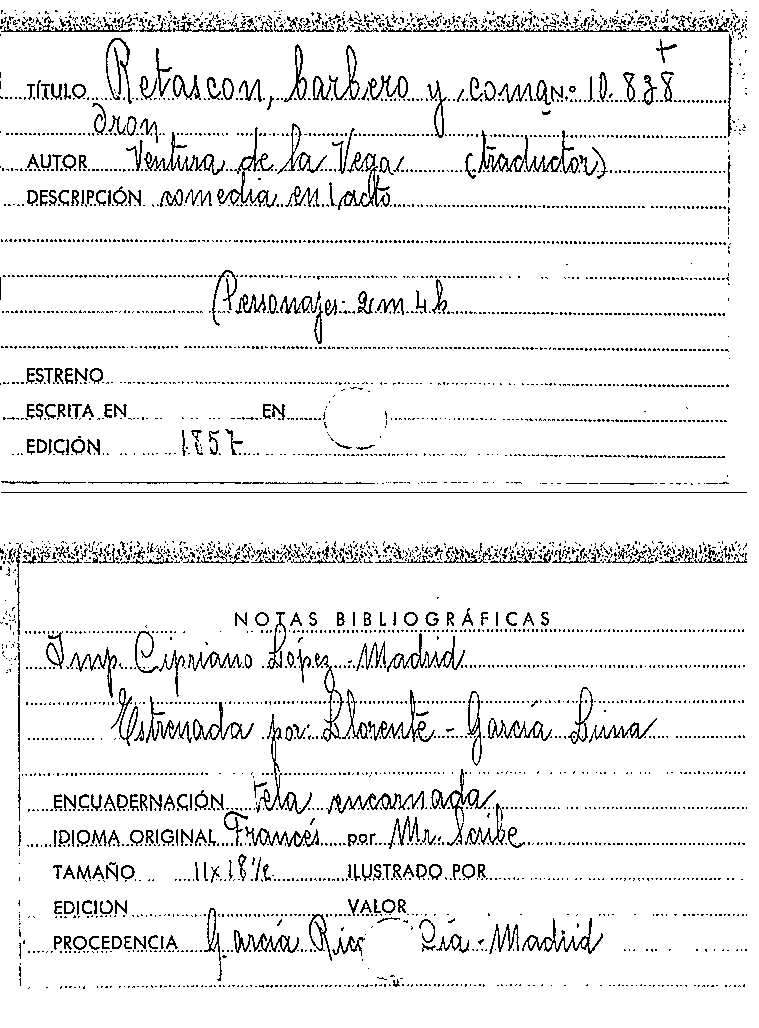 +
TÍTULO Retascon, barbero y coma N.º 10.838
dron
AUTOR Ventura de la Vega (traductor)
DESCRIPCIÓN comedia en 1 acto
Personajes: 2 m 4 h
ESTRENO
ESCRITA EN EN
EDICIÓN 1857
NOTAS BIBLIOGRÁFICAS
Imp. Cipriano López - Madrid
Estrenada por: Llorente - García Luna
ENCUADERNACIÓN tela encarnada
IDIOMA ORIGINAL Francés por Mr. Scribe
TAMAÑO 11 x 18 1/2 ILUSTRADO POR
EDICION VALOR
PROCEDENCIA García Ric Cía - Madrid